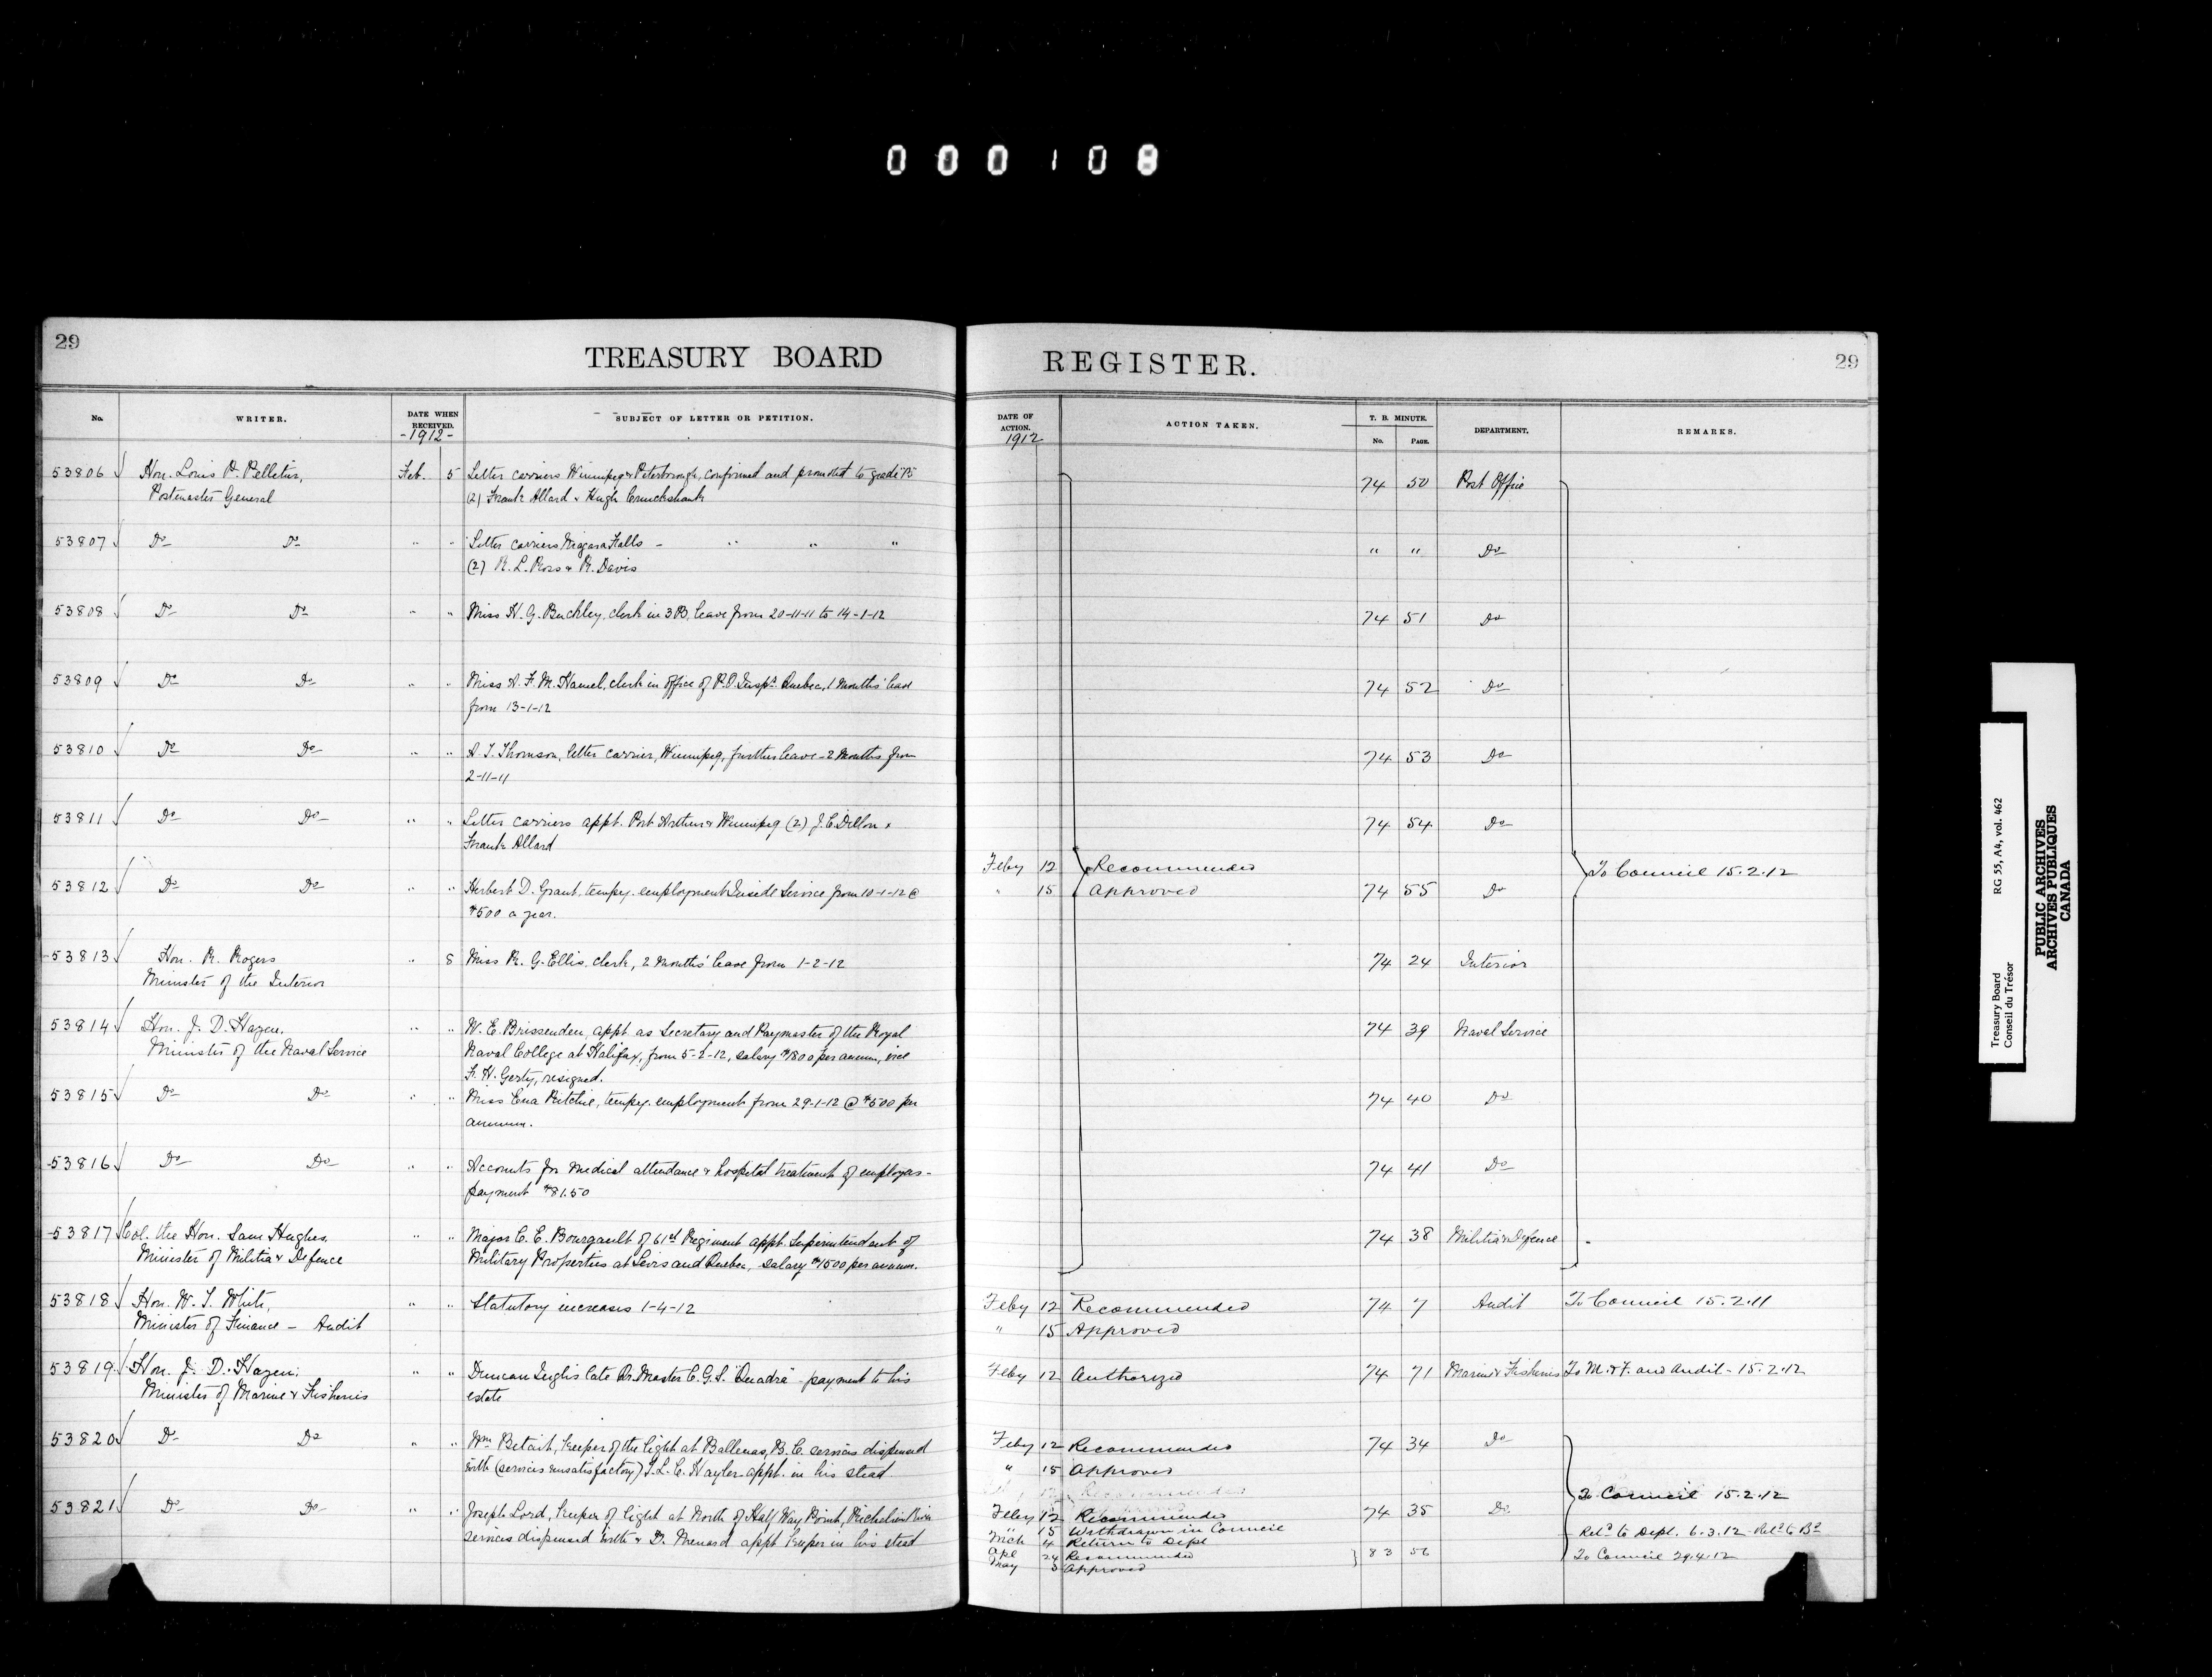 000108
29
TREASURY BOARD
REGISTER.
29
No.
WRITER.
DATE WHEN RECEIVED.
-1912-
SUBJECT OF LETTER OR PETITION.
DATE OF ACTION.
1912
ACTION TAKEN.
T. B. MINUTE.
No.
PAGE.
DEPARTMENT.
REMARKS.
53806 Hon. Louis P. Pelletier, Feb. 5 Letter carriers Winnipeg & Peterborough, confirmed and promoted to grade B 74 50 Post Office
Postmaster General (2) Frank Allard & Hugh Cruickshank
53807 Do Do " " Letter carriers Niagara Falls - " " " " " Do
(2) R. L. Ross & R. Davis
53808 Do Do " " Miss H. G. Buckley, clerk in 3B, leave from 20-11-11 to 14-1-12 74 51 Do
53809 Do Do " " Miss A. F. M. Hamel, clerk in office of P.O. Inspr Quebec, 1 months' leave 74 52 Do
from 13-1-12
53810 Do Do " " A. T. Thomson, letter carrier, Winnipeg, further leave - 2 months from 74 53 Do
2-11-11
53811 Do Do " " Letter carriers appt. Port Arthur & Winnipeg (2) J. C. Dillon & 74 54 Do
Frank Allard
Feby 12 Recommended To Council 15.2.12
53812 Do Do " " Herbert D. Grant, tempy. employment Inside Service from 10-1-12 @ " 15 Approved 74 55 Do
$500 a year.
53813 Hon. R. Rogers " 8 Miss R. G. Ellis, clerk, 2 months' leave from 1-2-12 74 24 Interior
Minister of the Interior
53814 Hon. J. D. Hazen, " " W. E. Brissenden, appt. as Secretary and Paymaster of the Royal 74 39 Naval Service
Minister of the Naval Service Naval College at Halifax, from 5-2-12, salary $1800 per annum, vice
F. H. Gerty, resigned.
53815 Do Do " " Miss Ena Ritchie, tempy. employment from 29-1-12 @ $500 per 74 40 Do
annum.
53816 Do Do " " Accounts for medical attendance & hospital treatment of employes - 74 41 Do
payment $81.50
53817 Col. the Hon. Sam Hughes, " " Major C. E. Bourgault of 61st Regiment appt. Superintendent of 74 38 Militia & Defence
Minister of Militia & Defence Military Properties at Levis and Quebec, salary $1500 per annum.
53818 Hon. W. T. White, " " Statutory increases 1-4-12 Feby 12 Recommended 74 7 Audit To Council 15.2.11
Minister of Finance - Audit " 15 Approved
53819 Hon. J. D. Hazen, " " Duncan Inglis late Br. Master C.G.S. "Quadra" - payment to his Feby 12 Authorized 74 71 Marine & Fisheries To M. & F. and Audit - 15.2.12
Minister of Marine & Fisheries estate
53820 Do Do " " Wm Betait, keeper of the light at Ballenas, B.C. services dispensed Feby 12 Recommended 74 34 Do
with (services unsatisfactory) T. L. C. Hayler appt. in his stead " 15 Approved
To Council 15.2.12
53821 Do Do " " Joseph Lord, keeper of light at North of Half Way Point, Richelieu River Feby 12 Recommended 74 35 Do
services dispensed with & D. Menard appt keeper in his stead " 15 Withdrawn in Council Retd to Dept. 6.3.12
Mch 4 Return to Dept
Apl 24 Recommended 83 56 To Council 29.4.12
May 3 Approved
Treasury Board
Conseil du Trésor
RG 55, A4, vol. 462
PUBLIC ARCHIVES
ARCHIVES PUBLIQUES
CANADA